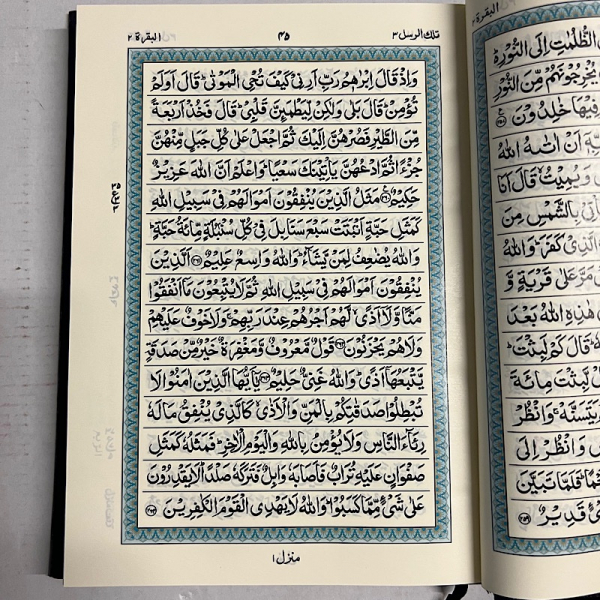 تلك الرسل ٣ ٤٥ البقرة ٢
وَاِذْ قَالَ اِبْرٰهٖمُ رَبِّ اَرِنِیْ كَیْفَ تُحْیِ الْمَوْتٰیؕ قَالَ اَوَلَمْ
تُؤْمِنْؕ قَالَ بَلٰی وَلٰكِنْ لِّیَطْمَىِٕنَّ قَلْبِیْؕ قَالَ فَخُذْ اَرْبَعَةً
مِّنَ الطَّیْرِ فَصُرْهُنَّ اِلَیْكَ ثُمَّ اجْعَلْ عَلٰی كُلِّ جَبَلٍ مِّنْهُنَّ
جُزْءًا ثُمَّ ادْعُهُنَّ یَاْتِیْنَكَ سَعْیًاؕ وَاعْلَمْ اَنَّ اللّٰهَ عَزِیْزٌ
حَكِیْمٌ۝٢٦٠ مَثَلُ الَّذِیْنَ یُنْفِقُوْنَ اَمْوَالَهُمْ فِیْ سَبِیْلِ اللّٰهِ
كَمَثَلِ حَبَّةٍ اَنْۢبَتَتْ سَبْعَ سَنَابِلَ فِیْ كُلِّ سُنْۢبُلَةٍ مِّائَةُ حَبَّةٍؕ
وَاللّٰهُ یُضٰعِفُ لِمَنْ یَّشَآءُؕ وَاللّٰهُ وَاسِعٌ عَلِیْمٌ۝٢٦١ اَلَّذِیْنَ
یُنْفِقُوْنَ اَمْوَالَهُمْ فِیْ سَبِیْلِ اللّٰهِ ثُمَّ لَا یُتْبِعُوْنَ مَاۤ اَنْفَقُوْا
مَنًّا وَّلَاۤ اَذًیۙ لَّهُمْ اَجْرُهُمْ عِنْدَ رَبِّهِمْۚ وَلَا خَوْفٌ عَلَیْهِمْ
وَلَا هُمْ یَحْزَنُوْنَ۝٢٦٢ قَوْلٌ مَّعْرُوْفٌ وَّمَغْفِرَةٌ خَیْرٌ مِّنْ صَدَقَةٍ
یَّتْبَعُهَاۤ اَذًیؕ وَاللّٰهُ غَنِیٌّ حَلِیْمٌ۝٢٦٣ یٰۤاَیُّهَا الَّذِیْنَ اٰمَنُوْا لَا
تُبْطِلُوْا صَدَقٰتِكُمْ بِالْمَنِّ وَالْاَذٰیۙ كَالَّذِیْ یُنْفِقُ مَالَهٗ
رِئَآءَ النَّاسِ وَلَا یُؤْمِنُ بِاللّٰهِ وَالْیَوْمِ الْاٰخِرِؕ فَمَثَلُهٗ كَمَثَلِ
صَفْوَانٍ عَلَیْهِ تُرَابٌ فَاَصَابَهٗ وَابِلٌ فَتَرَكَهٗ صَلْدًاؕ لَا یَقْدِرُوْنَ
عَلٰی شَیْءٍ مِّمَّا كَسَبُوْاؕ وَاللّٰهُ لَا یَهْدِی الْقَوْمَ الْكٰفِرِیْنَ۝٢٦٤
منزل ١
البقرة ٢
الظُّلُمٰتِ اِلَی النُّوْرِ
یُخْرِجُوْنَهُمْ مِّنَ النُّوْرِ
فِیْهَا خٰلِدُوْنَ
اَنْ اٰتٰىهُ اللّٰهُ
وَیُمِیْتُ قَالَ اَنَا
یَاْتِیْ بِالشَّمْسِ مِنَ
الَّذِیْ كَفَرَؕ وَاللّٰهُ
مَرَّ عَلٰی قَرْیَةٍ وَّ
هٰذِهِ اللّٰهُ بَعْدَ
قَالَ كَمْ لَبِثْتَ
لَّبِثْتَ مِائَةَ
یَتَسَنَّهْۚ وَانْظُرْ
وَانْظُرْ اِلَی
فَلَمَّا تَبَیَّنَ
شَیْءٍ قَدِیْرٌ۝٢٥٩